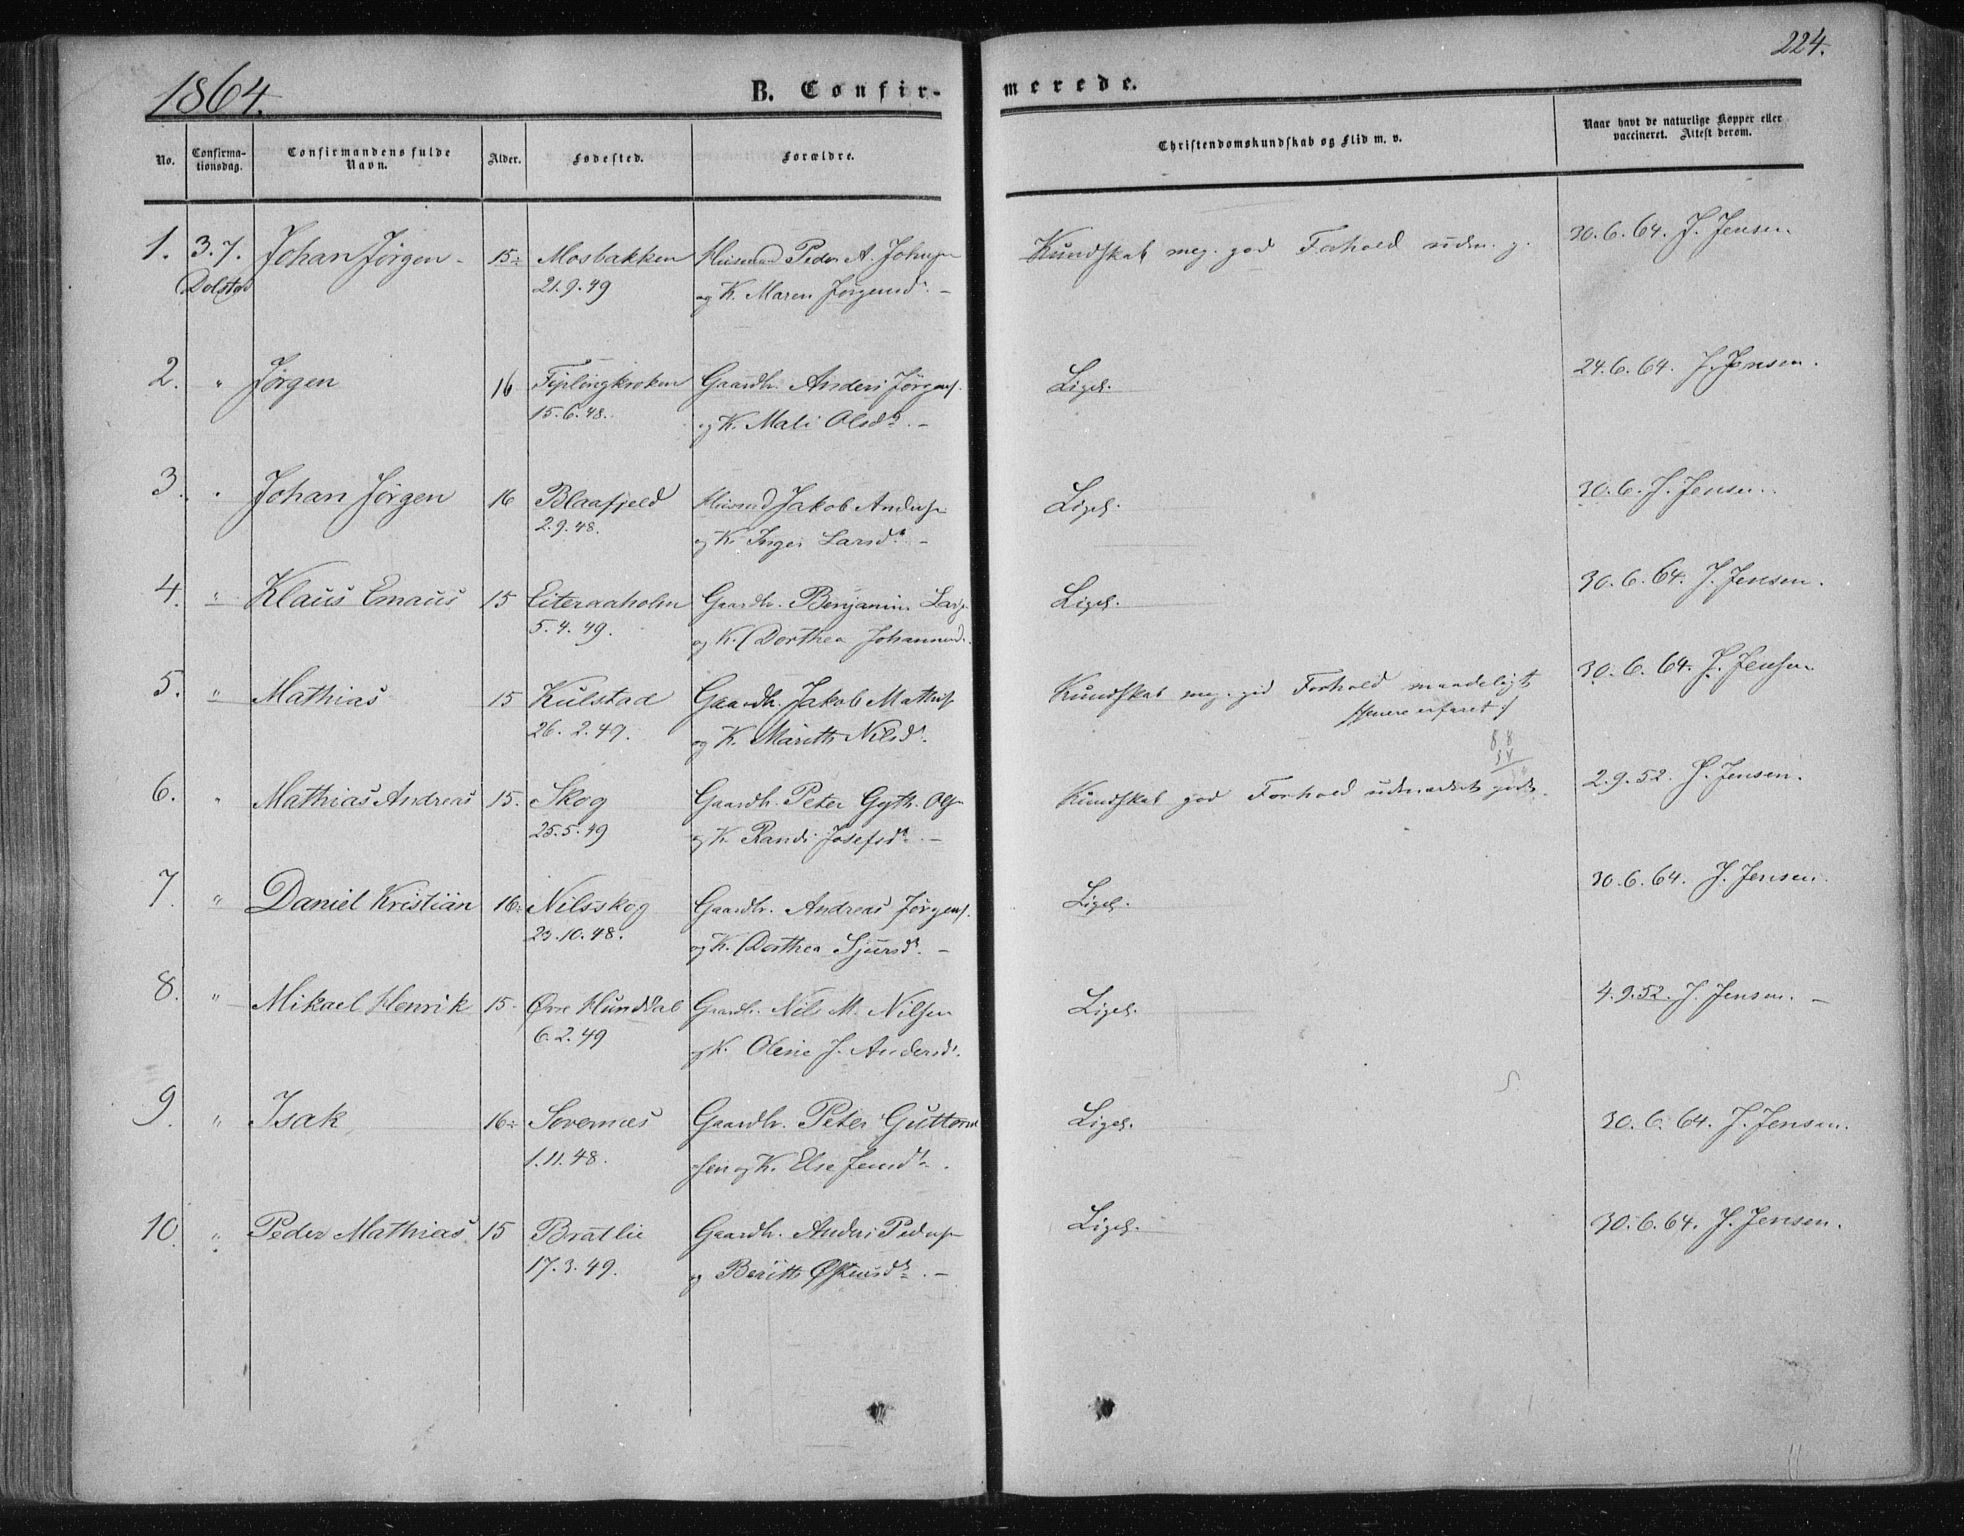 1864.
B. Confir-
merede.
224.
No.
Confirma-
tionsdag.
Confirmandens fulde
Navn.
Alder.
Fødested.
Forældre.
Christendomskundskab og Flid m. v.
Naar havt de naturlige Kopper eller
vaccineret. Attest derom.
1. 3.7. Johan Jørgen - 15 Mosbakken Husmd Peder A. Johns. Kundskab meg. god Forhold udm. g. 30.6.64. J. Jensen
Dolstad 21.9.49 og K. Maren Jørgensd. -
2. " Jørgen 16 Fiplingkroken Gaardbr. Anders Jørgens. Liges. 24.6.64. J. Jensen.
15.6.48. og K. Mali Olsdr. -
3. " Johan Jørgen 16 Blaafjeld Husmd Jakob Anders. Liges. 30.6. J. Jensen.
2.9.48. og K. Inger Larsdr. -
4. " Klaus Emaus 15 Eiteraaholm Gaardbr. Benjamin Lars. Liges. 30.6.64. J. Jensen.
5.4.49. og K. Dorthea Johannesd.
5. " Mathias 15 Kulstad Gaardbr. Jakob Mathis. Kundskab meg. god Forhold maadeligt 30.6.64. J. Jensen
26.2.49. og K. Marith Nilsd. senere erfaret
6. " Mathias Andreas 15. Skog Gaardbr. Peter Gyth. Ols. Kundskab god Forhold udmærket godt. 2.9.52. J. Jensen.
25.5.49 og K. Randi Josefsdr. -
7. " Daniel Kristian 16 Nilsskog Gaardbr. Andreas Jørgens. Liges. 30.6.64. J. Jensen.
23.10.48. og K. Dorthea Sjursd. -
8. " Mikael Henrik 15. Øvre Hunddal Gaardbr. Nils M. Nilsen Liges. 4.9.52. J. Jensen. -
6.2.49 og K. Oline J. Andersd.
9. " Isak 16 Sovernæs Gaardbr. Peter Guttorm Liges. 30.6.64. J. Jensen.
1.11.48. sen og K. Else Jensd.
10. " Peder Mathias 15 Bratlie Gaardbr. Anders Peders. Liges. 30.6.64. J. Jensen.
17.3.49. og Berith Østensdr. -